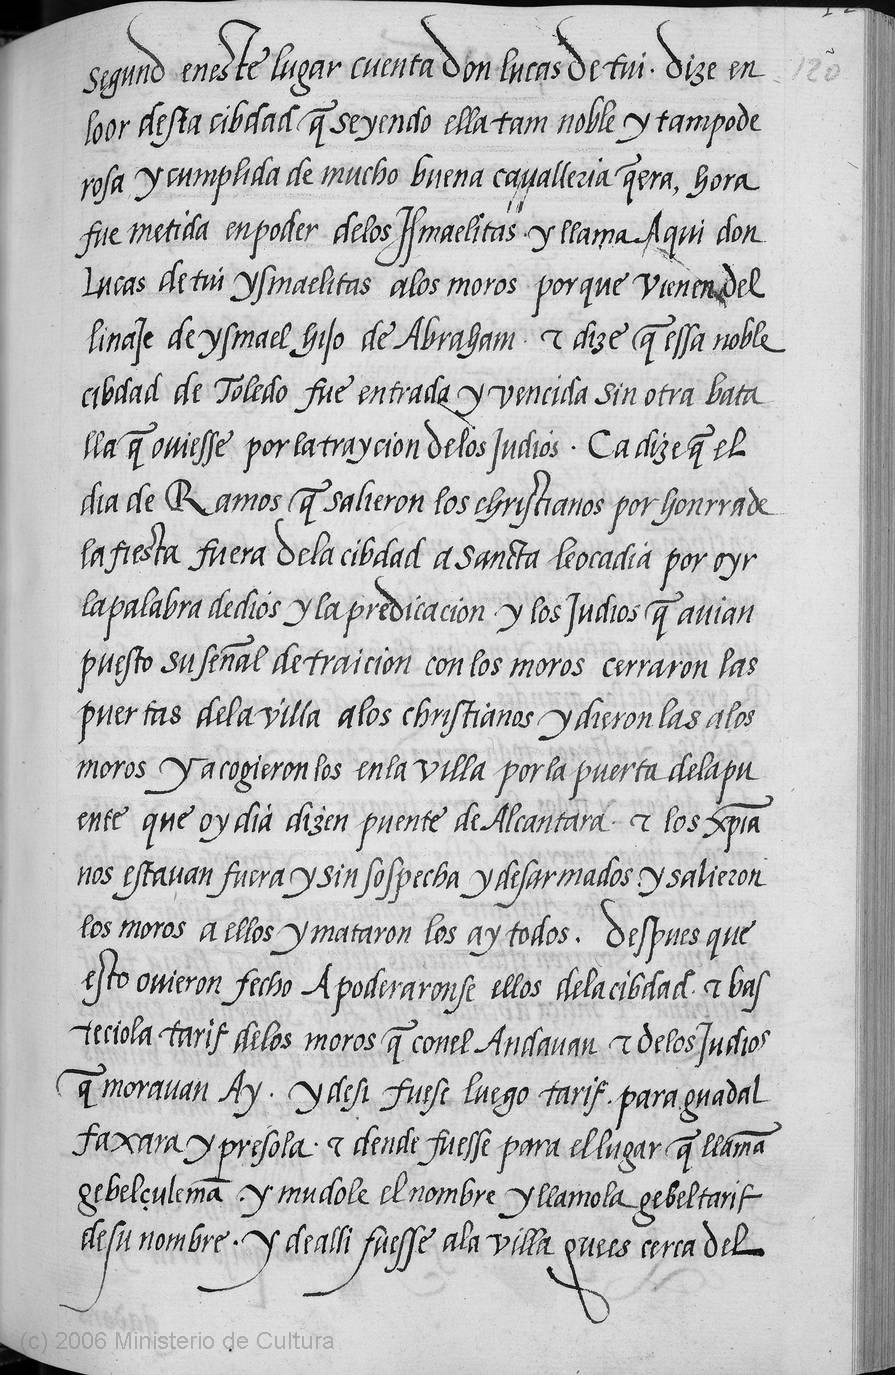 120
segund en este lugar cuenta don lucas de tui. dize en
loor desta cibdad q̃ seyendo ella tam noble y tampode
rosa y cumplida de mucho buena cavalleria q̃ era, hora
fue metida en poder delos Jsmaelitas y llama Aqui don
Lucas de tui ysmaelitas alos moros porque vienen del
linaje de ysmael hijo de Abraham. τ dize q̃ essa noble
cibdad de Toledo fue entrada y vencida sin otra bata
lla q̃ oviesse por la traycion delos Judios. Ca dize q̃ el
dia de Ramos q̃ salieron los christianos por honrra de
la fiesta fuera dela cibdad a sancta leocadia por oyr
la palabra de dios y la predicacion. y los Judios q̃ auian
puesto su señal de traicion con los moros cerraron las
puertas dela villa alos christianos y dieron las alos
moros y acogieron los enla villa por la puerta dela pu
ente que oy dia dizen puente de Alcantara. τ los xp̃ia
nos estauan fuera y sin sospecha y desarmados. y salieron
los moros a ellos y mataron los ay todos. Despues que
esto ovieron fecho Apoderaronse ellos dela cibdad. τ bas
teciola tarif delos moros q̃ conel Andauan τ delos Judios
q̃ morauan Ay. y desi fuese luego tarif. para guadal
faxara y presola. τ dende fuesse para el lugar q̃ llamã
gebelçulemã. y mudole el nombre y llamola gebeltarif
de su nombre. y de alli fuesse ala villa que es cerca del
(c) 2006 Ministerio de Cultura